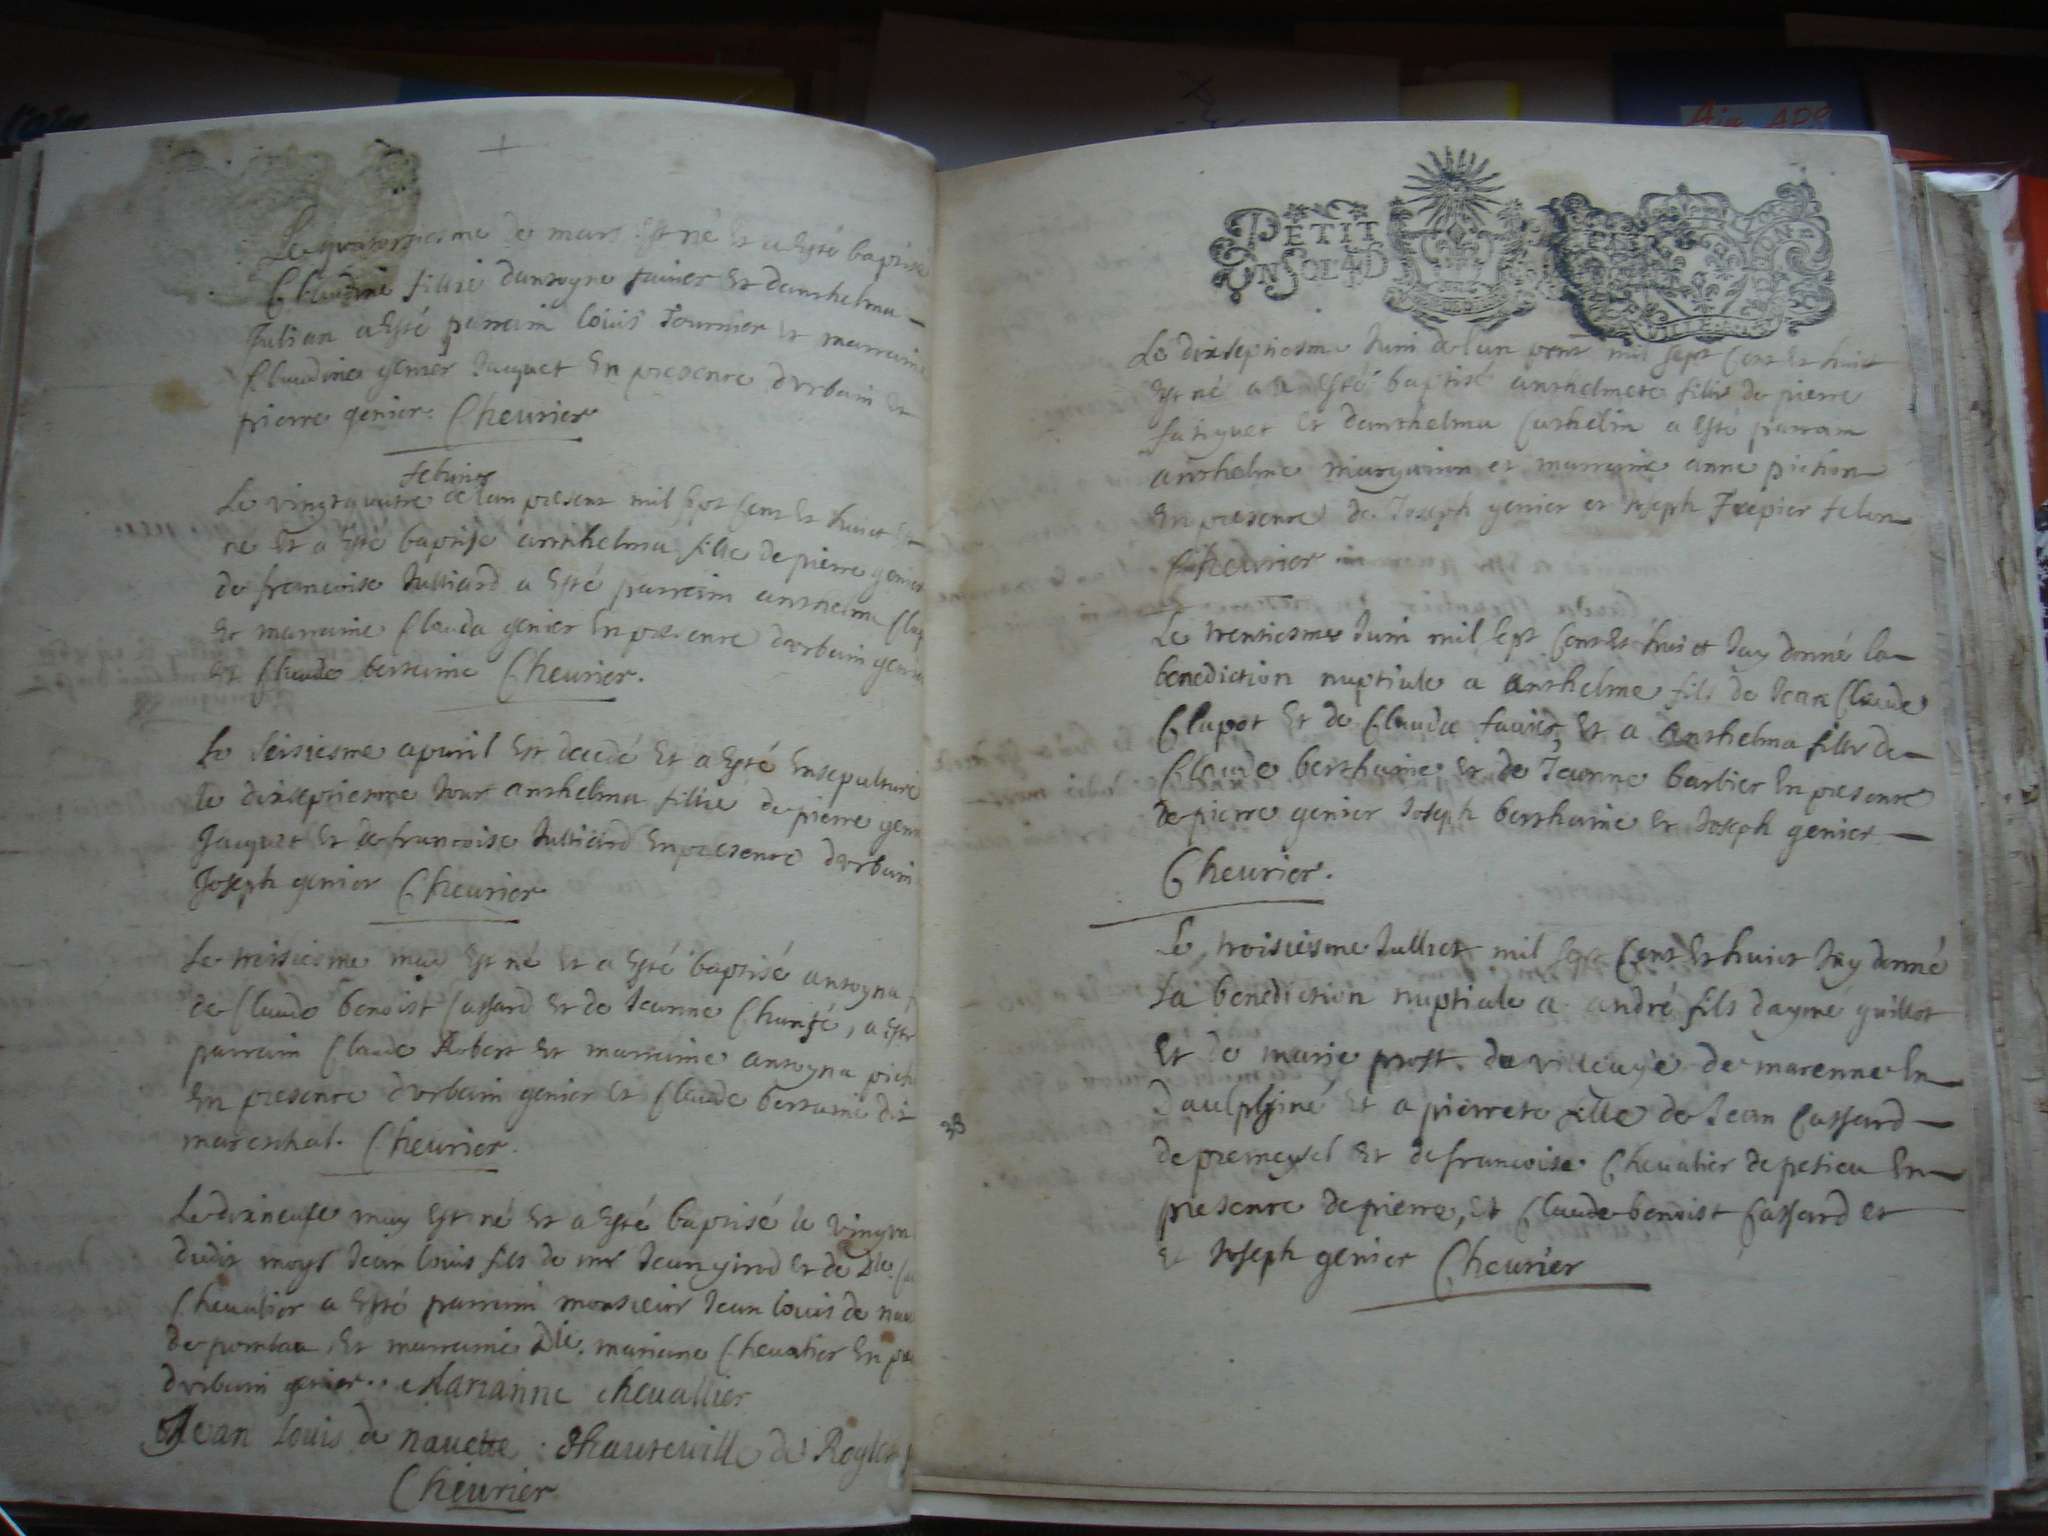 Le quatorsiesme de mars Est né Et a Esté baptisé
Claudine fillie dantoyne favier Et danthelma
Julian a Esté parrain louis Fournier Et marraine
Claudine genier Jaquet En presence durbain Et
pierre genier. Cheurier
febvrier
Le vingtquatre de lan present mil sept Cent Et huict Est
né Et a Esté baptisé anthelma fille de pierre genier
de francoise Julliard a Esté parrain anthelme
Et marraine Clauda genier En presence durbain genier
Et Claude bertaine Cheurier.
Le seisiesme apuril Est decedé Et a Esté Ensepulturé
le dixseptiesme Jour anthelma fillie de pierre genier
Jaquet Et de francoise Julliard En presence durbain
Joseph genier Cheurier
Le troisiesme may Est né Et a Esté baptisé antoyna
de Claude benoist Cassard Et de Jeanne a Esté
parrain Claude Robert Et marraine antoyna
En presence durbain genier Et Claude bertaine dit
mareschal. Cheurier.
Le dixneufe may Est né Et a Esté baptisé le
dudit moys Jean louis fils de mr Jean Et de Dlle.
Chevalier a Esté parrain monsieur Jean louis de
de Et marraine Dlle. mariane Chevalier En
durbain genier. Marianne chevallier
Jean Louis de navette: dhauteville de
Cheurier
PETIT
UN SOL 4 D
Le dixseptiesme Juin de lan mil sept Cent Et huict
Est né a Esté baptisé anthelmete fillie de pierre
Et danthelma Carthelin a Esté parrain
anthelme Et marraine anne pichon
En presence de Joseph genier et Joseph
Cheurier
Le trentiesme Juin mil sept Cent Et huict Jay donné la
benediction nuptiale a anthelme fils de Jean Claude
Clapot Et de Clauda favier, Et a anthelma fillie de
Claude berthaine Et de Jeanne barbier En presence
de pierre genier Joseph berthaine Et Joseph genier
Cheurier.
Le troisiesme Julliet mil sept Cent Et huict Jay donné
La benediction nuptiale a andré fils daymé guillot
Et de marie prost. de de marenne En
daulphiné Et a pierrete fille de Jean Cassard
de premeysel Et de francoise Chevalier de petieu En
presence de pierre, Et Claude benoist Cassard et
Et Joseph genier Cheurier
33